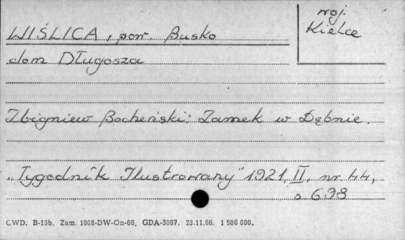 WIŚLICA, pow. Busko
woj. Kielce
dom Długosza
Zbigniew Bocheński: Zamek w Dębnie.
„Tygodnik Ilustrowany" 1921, II, nr. 44,
s 698
C.W.D. B-15b, Zam. 1008-DW-On-66, GDA-3067. 23.11.66. 1 506 000.